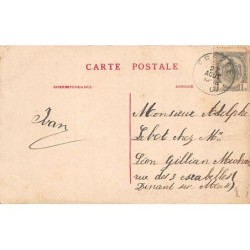 CARTE POSTALE
CORRESPONDANCE
ADRESSE
Ivan
Monsieur Adolphe
Lebot chez Mr
Léon Gillian
rue des 3 escabelles
Dinant sur Meuse